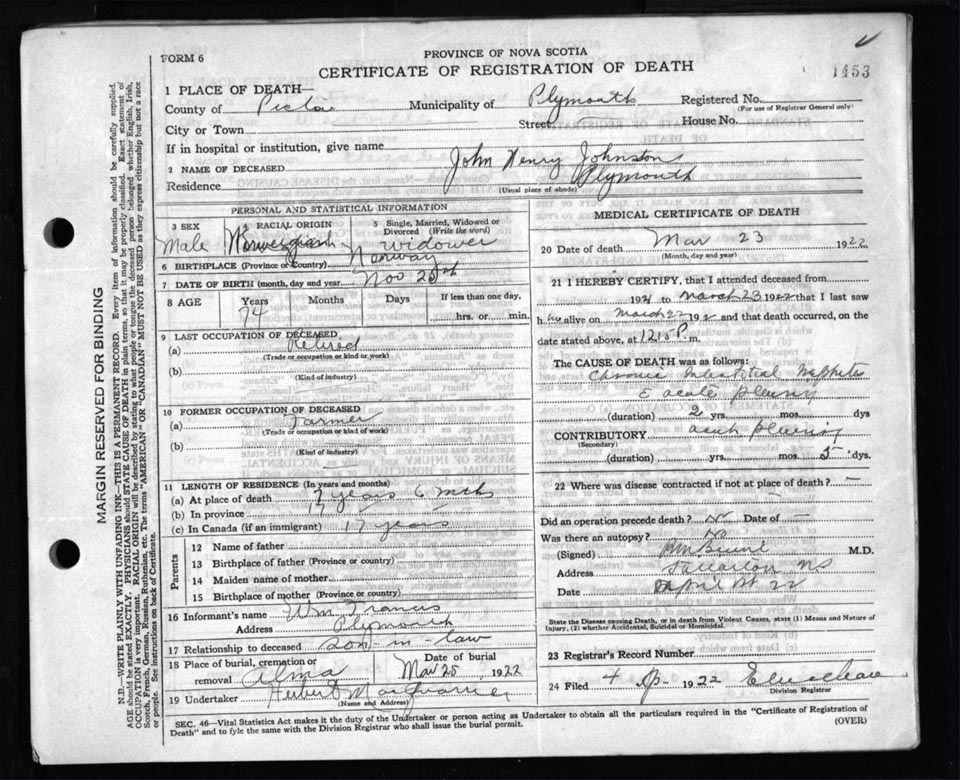 FORM 6
PROVINCE OF NOVA SCOTIA
CERTIFICATE OF REGISTRATION OF DEATH
1453
1 PLACE OF DEATH—
County of Pictou Municipality of Plymouth Registered No.
(For use of Registrar General only)
City or Town Street House No.
If in hospital or institution, give name
2 NAME OF DECEASED John Henry Johnston
Residence Plymouth
(Usual place of abode)
PERSONAL AND STATISTICAL INFORMATION
3 SEX RACIAL ORIGIN 5 Single, Married, Widowed or Divorced (Write the word)
Male Norwegian widower
6 BIRTHPLACE (Province or Country) Norway
7 DATE OF BIRTH (month, day and year) Nov 25th
8 AGE Years Months Days If less than one day,
74 hrs. or min.
9 LAST OCCUPATION OF DECEASED
(a) Retired
(Trade or occupation or kind or work)
(b)
(Kind of industry)
10 FORMER OCCUPATION OF DECEASED
(a) Farmer
(Trade or occupation or kind or work)
(b)
(Kind of industry)
11 LENGTH OF RESIDENCE (In years and months)
(a) At place of death 7 years 6 mths
(b) In province 17
(c) In Canada (if an immigrant) 17 years
Parents
12 Name of father
13 Birthplace of father (Province or country)
14 Maiden name of mother
15 Birthplace of mother (Province or country)
16 Informant's name Wm Francis
Address Plymouth
17 Relationship to deceased son-in-law
18 Place of burial, cremation or removal Alma Date of burial Mar 25 1922
19 Undertaker Herbert MacQuarrie
(Name and Address)
MEDICAL CERTIFICATE OF DEATH
20 Date of death Mar 23 1922
(Month, day and year)
21 I HEREBY CERTIFY, that I attended deceased from
1921 to March 23 1922 that I last saw
h alive on March 22 192 and that death occurred, on the
date stated above, at 12 15 P. m.
The CAUSE OF DEATH was as follows:
Chronic Interstitial Nephritis
acute pleurisy
(duration) 2 yrs. mos. dys
CONTRIBUTORY acute pleurisy
(Secondary)
(duration) yrs. mos. 5 dys.
22 Where was disease contracted if not at place of death? —
Did an operation precede death? no Date of —
Was there an autopsy?
(Signed) M.D.
Address Stellarton NS
Date April 22
State the Disease causing Death, or in death from Violent Causes, state (1) Means and Nature of
Injury, (2) whether Accidental, Suicidal or Homicidal.
23 Registrar's Record Number
24 Filed 4 Ap 1922
Division Registrar
SEC. 46—Vital Statistics Act makes it the duty of the Undertaker or person acting as Undertaker to obtain all the particulars required in the "Certificate of Registration of
Death" and to fyle the same with the Division Registrar who shall issue the burial permit. (OVER)
MARGIN RESERVED FOR BINDING
N.B.—WRITE PLAINLY WITH UNFADING INK—THIS IS A PERMANENT RECORD. Every item of information should be carefully supplied.
AGE should be stated EXACTLY. PHYSICIANS should STATE CAUSE OF DEATH in plain terms, so that it may be properly classified. Exact statement of
OCCUPATION is very important. RACIAL ORIGIN will be described by stating to what people or tongue the deceased person belonged whether English, Irish,
Scotch, French, German, Russian, Ruthenian, etc. The terms "AMERICAN" OR "CANADIAN" MUST NOT BE USED as they express citizenship but not a race
or people. See instructions on back of Certificate.